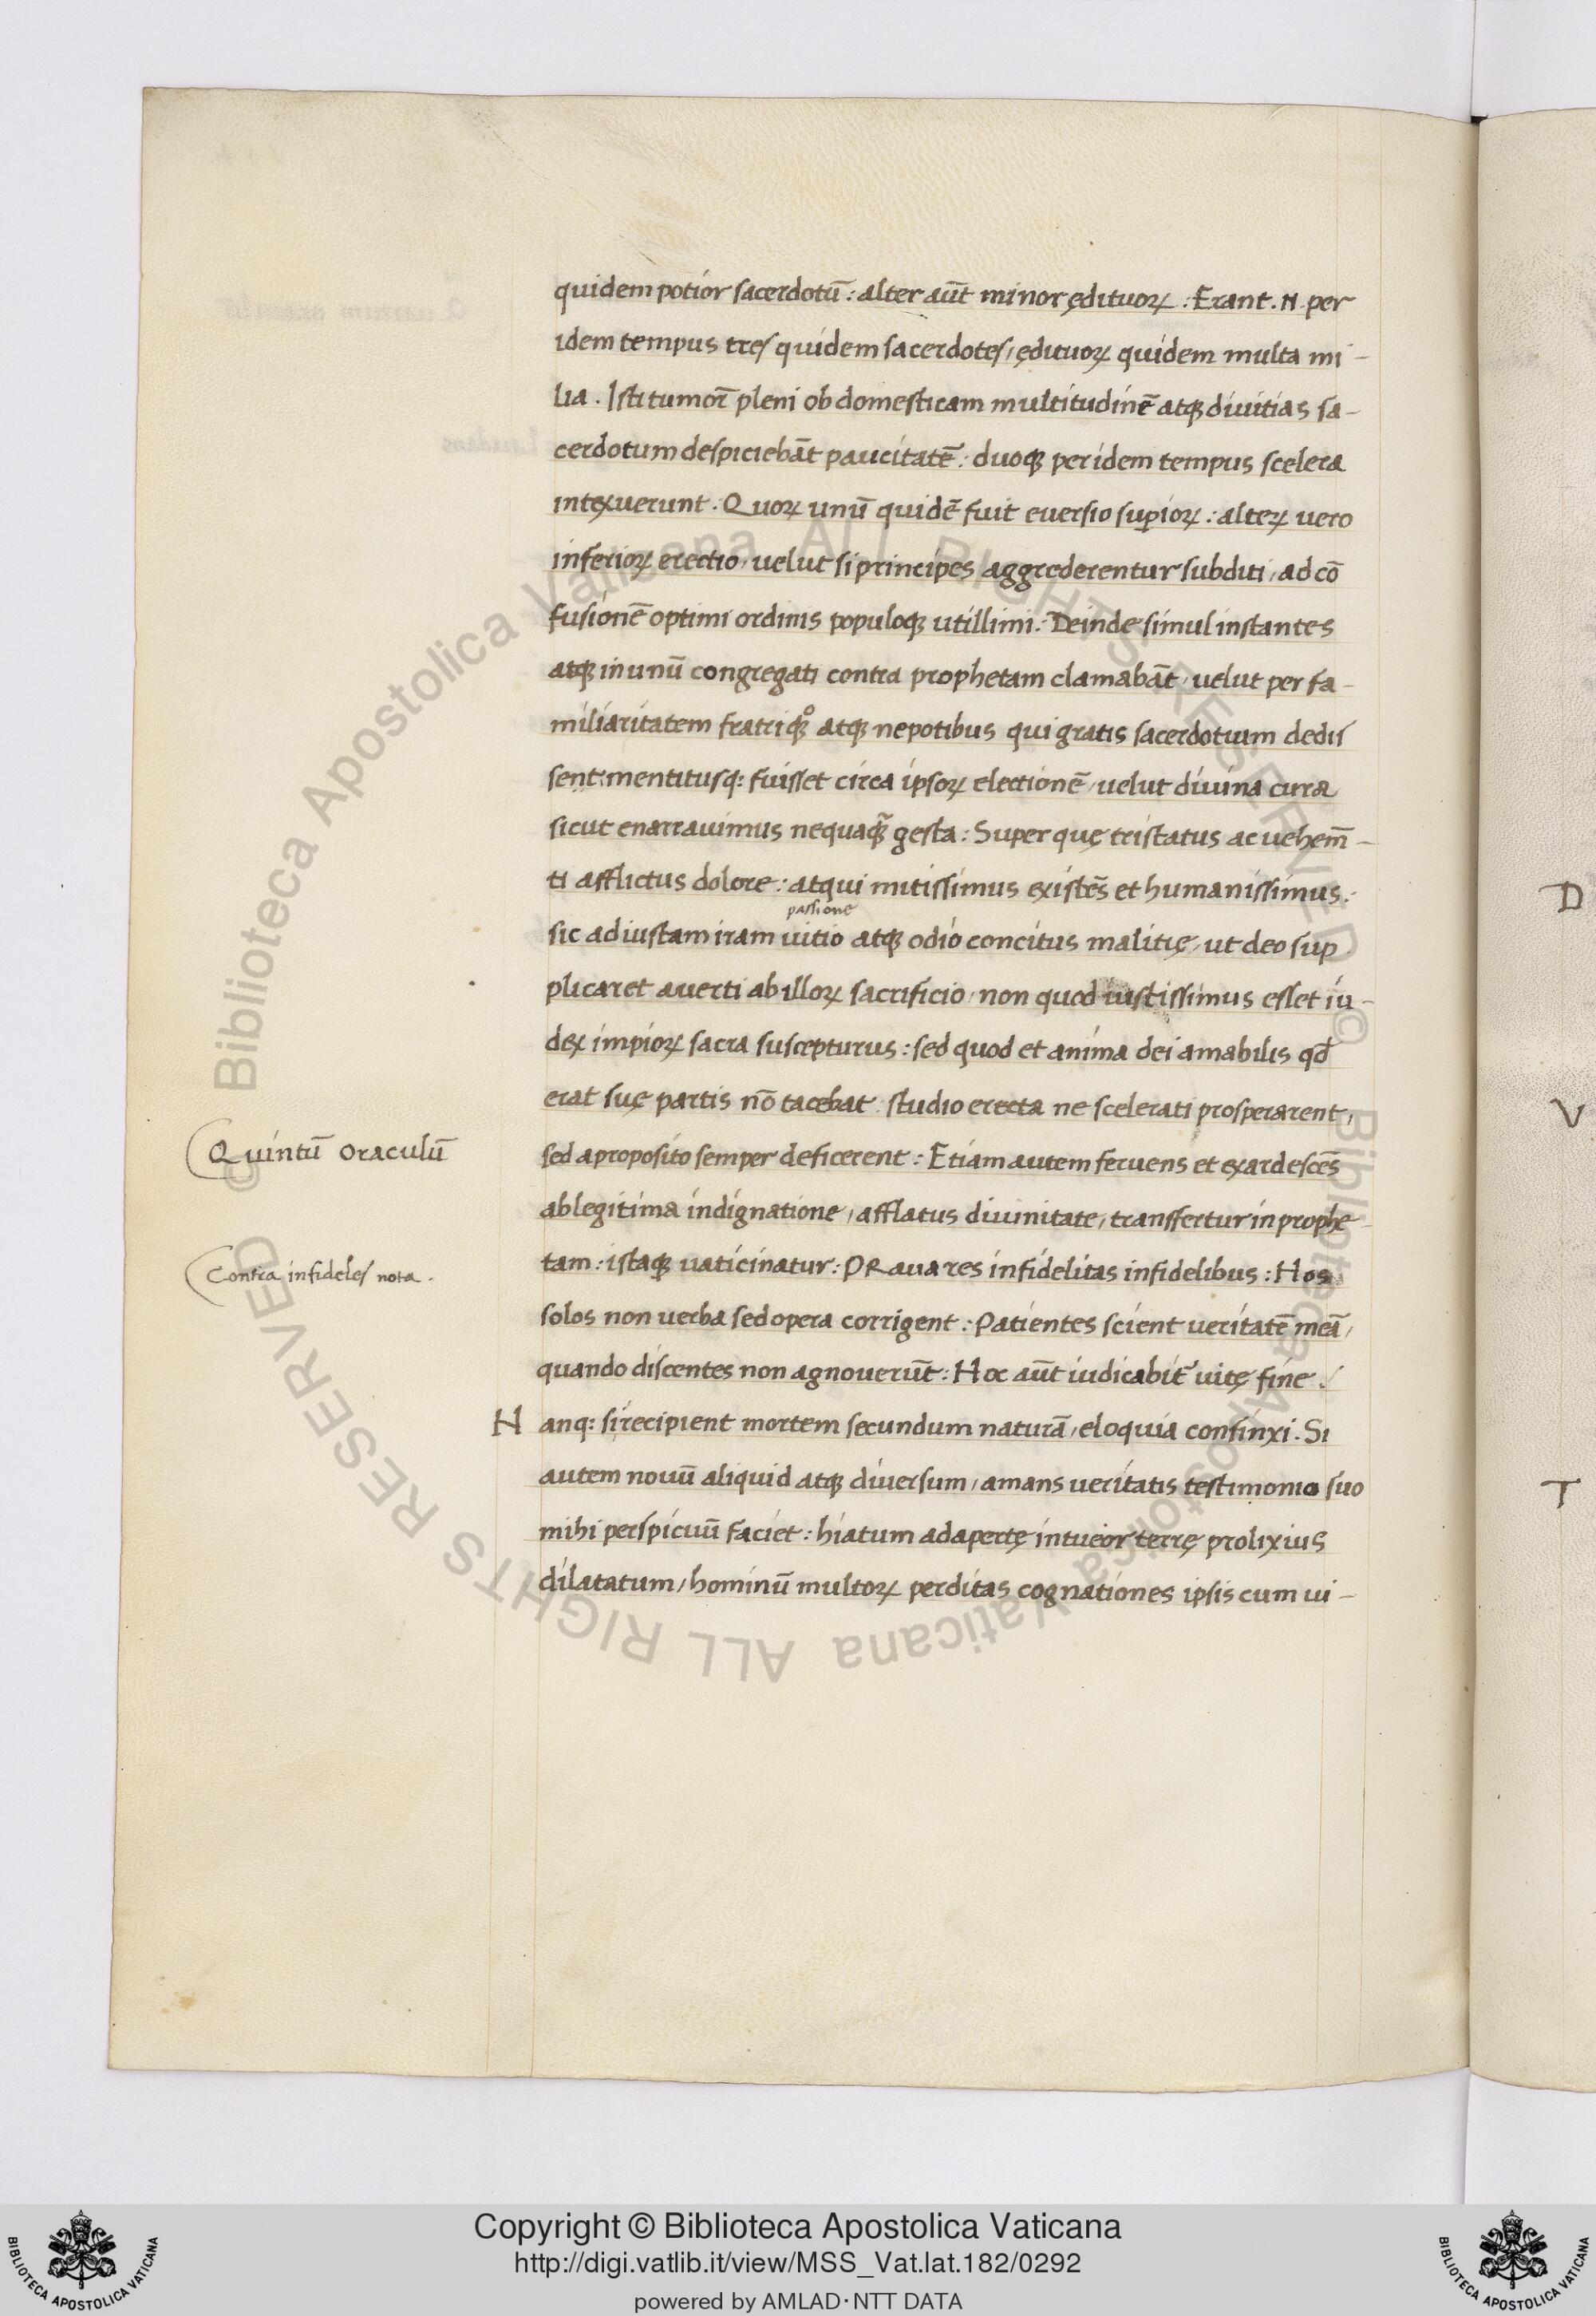 quidem potior sacerdotū : alter aūt minor ędituoꝝ : Erant . N . per
idem tempus tres quidem sacerdotes, ędituoꝝ quidem multa mi-
lia . Isti tumor̄ pleni ob domesticam multitudinē atqꝫ diuitias sa-
cerdotum despiciebāt paucitatē : duoqꝫ per idem tempus scelera
intexuerunt . Quoꝝ unū quidē fuit euersio supioꝝ : alteꝝ vero
inferioꝝ erectio, uelut si principes aggrederentur subditi, ad cō
fusionē optimi ordinis populoqꝫ utillimi : Deinde simul instantes
atqꝫ in unū congregati contra prophetam clamabāt, uelut per fa-
miliaritatem fratriqꝫ° atqꝫ nepotibus qui gratis sacerdotium dedis
sent mentitusq: fuisset circa ipsoꝝ electionē, uelut diuina cura
sicut enarrauimus nequaqꝫ̄ gesta : Super quę tristatus ac uehem̄-
ti afflictus dolore : atqui mitissimus existēs et humanissimus :
passione
sic ad iustam iram uitio atqꝫ odio concitus malitię, ut deo sup
plicaret auerti ab illoꝝ sacrificio, non quod iustissimus esset iu-
dex impioꝝ sacra suscepturus : sed quod et anima dei amabilis qd̄
erat suę partis nō tacebat studio erecta ne scelerati prosperarent,
Quintū Oraculū
sed a proposito semper deficerent : Etiam autem feruens et exardescēs
ab legitima indignatione, afflatus diuinitate, transfertur in prophe
Contra infideles nota .
tam : istaqꝫ uaticinatur : PRaua res infidelitas infidelibus : Hos
solos non uerba sed opera corrigent : Patientes scient ueritatē meā,
quando discentes non agnouerūt : Hoc aūt iudicabit̄ uitę fine .
H anq: si recipient mortem secundum naturā, eloquia confinxi . Si
autem nouū aliquid atqꝫ diuersum, amans ueritatis testimonio suo
mihi perspicuū faciet : hiatum adapertę intueor terrę prolixius
dilatatum, hominū multoꝝ perditas cognationes ipsis cum ui-
D
V
T
Copyright © Biblioteca Apostolica Vaticana
http://digi.vatlib.it/view/MSS_Vat.lat.182/0292
powered by AMLAD·NTT DATA
BIBLIOTECA APOSTOLICA VATICANA
BIBLIOTECA APOSTOLICA VATICANA
© Biblioteca Apostolica Vaticana ALL RIGHTS RESERVED
© Biblioteca Apostolica Vaticana ALL RIGHTS RESERVED